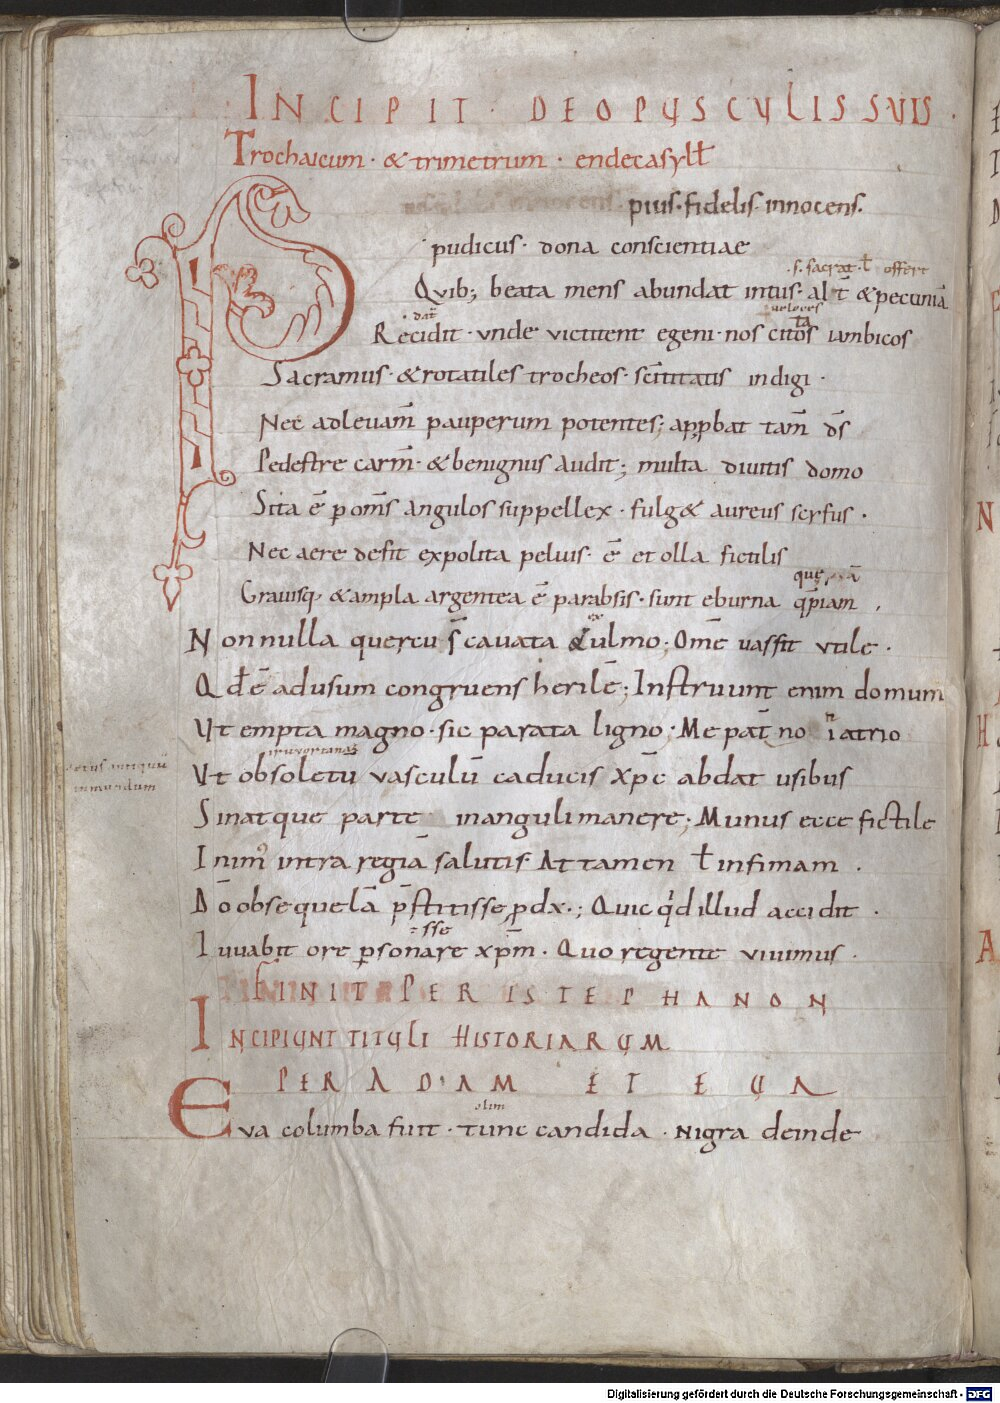 INCIPIT · DE OPUSCULIS SUIS ·
Trochaicum · & trimetrum · endecasyll̄
P pius · fidelis · innocens ·
pudicus · dona conscientiae
.s. sacrat · ł offert
Quib; beata mens abundat intus · alt̄ & pecuniā
dat̄ veloces
Recidit · unde victitent egeni · nos citos iambicos
ta
Sacramus · & rotatiles trocheos · sc̄titatis indigi ·
Nec ad levam̄ pauperum potentes; appbat tam̄ ds̄
Pedestre carm̄ · & benignus audit; multa divitis domo
Sita ē p oms̄ angulos suppellex · fulg& aureus scyfus ·
Nec aere defit expolita pelvis · ē et olla fictilis
que
Gravisq; & ampla argentea ē parabsis · sunt eburna qp̄iam ,
ex
Non nulla quercu s̄ cavata & ulmo; Om̄e vas fit utile ·
Qđ ē ad usum congruens herilē; Instruunt enim domum
Ut empta magno · sic parata ligno · Me pat̄ no i atrio
n
Ut obsoletū vasculū caducis xp̄c abdat usibus
Sinatque parte in anguli manere; Munus ecce fictile
Inim' intra regiā salutis · Attamen ł infimam ·
Dō obsequelā p̄stitisse, pdx · ; Quicqd illud accidit ·
= sse
Iuvabit ore psonare xp̄m · Quo regente vivimus ·
FINIT PERISTEPHANON
INCIPIUNT TITULI HISTORIARUM
PER ADAM ET EUA
olim
Eva columba fuit · tunc candida · nigra deinde
Digitalisierung gefördert durch die Deutsche Forschungsgemeinschaft - DFG